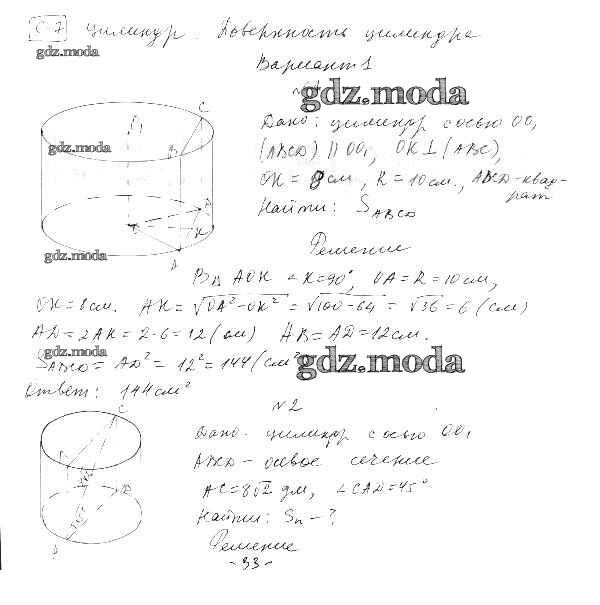 С-7 Цилиндр. Поверхность цилиндра
gdz.moda
Вариант 1
№1
gdz.moda
Дано: цилиндр с осью OO₁
(ABCD) || OO₁, OK⊥(ABC),
OK = 8 см, R = 10 см., ABCD - квад-
рат
Найти: S_ABCD
gdz.moda
C
O₁
B
D
K
O
A
gdz.moda
Решение
В △ AOK ∠K=90°, OA=R=10 см,
OK=8 см. AK=√OA²-OK² = √100-64 = √36 = 6 (см)
AD=2AK=2·6=12 (см) AB=AD=12 см.
gdz.moda
S_ABCD = AD² = 12² = 144 (см²)
gdz.moda
Ответ: 144 см²
№2
Дано: цилиндр с осью OO₁
ABCD - осевое сечение
AC=8√2 дм, ∠CAD=45°
Найти: Sп - ?
Решение
C
D
A
- 33 -